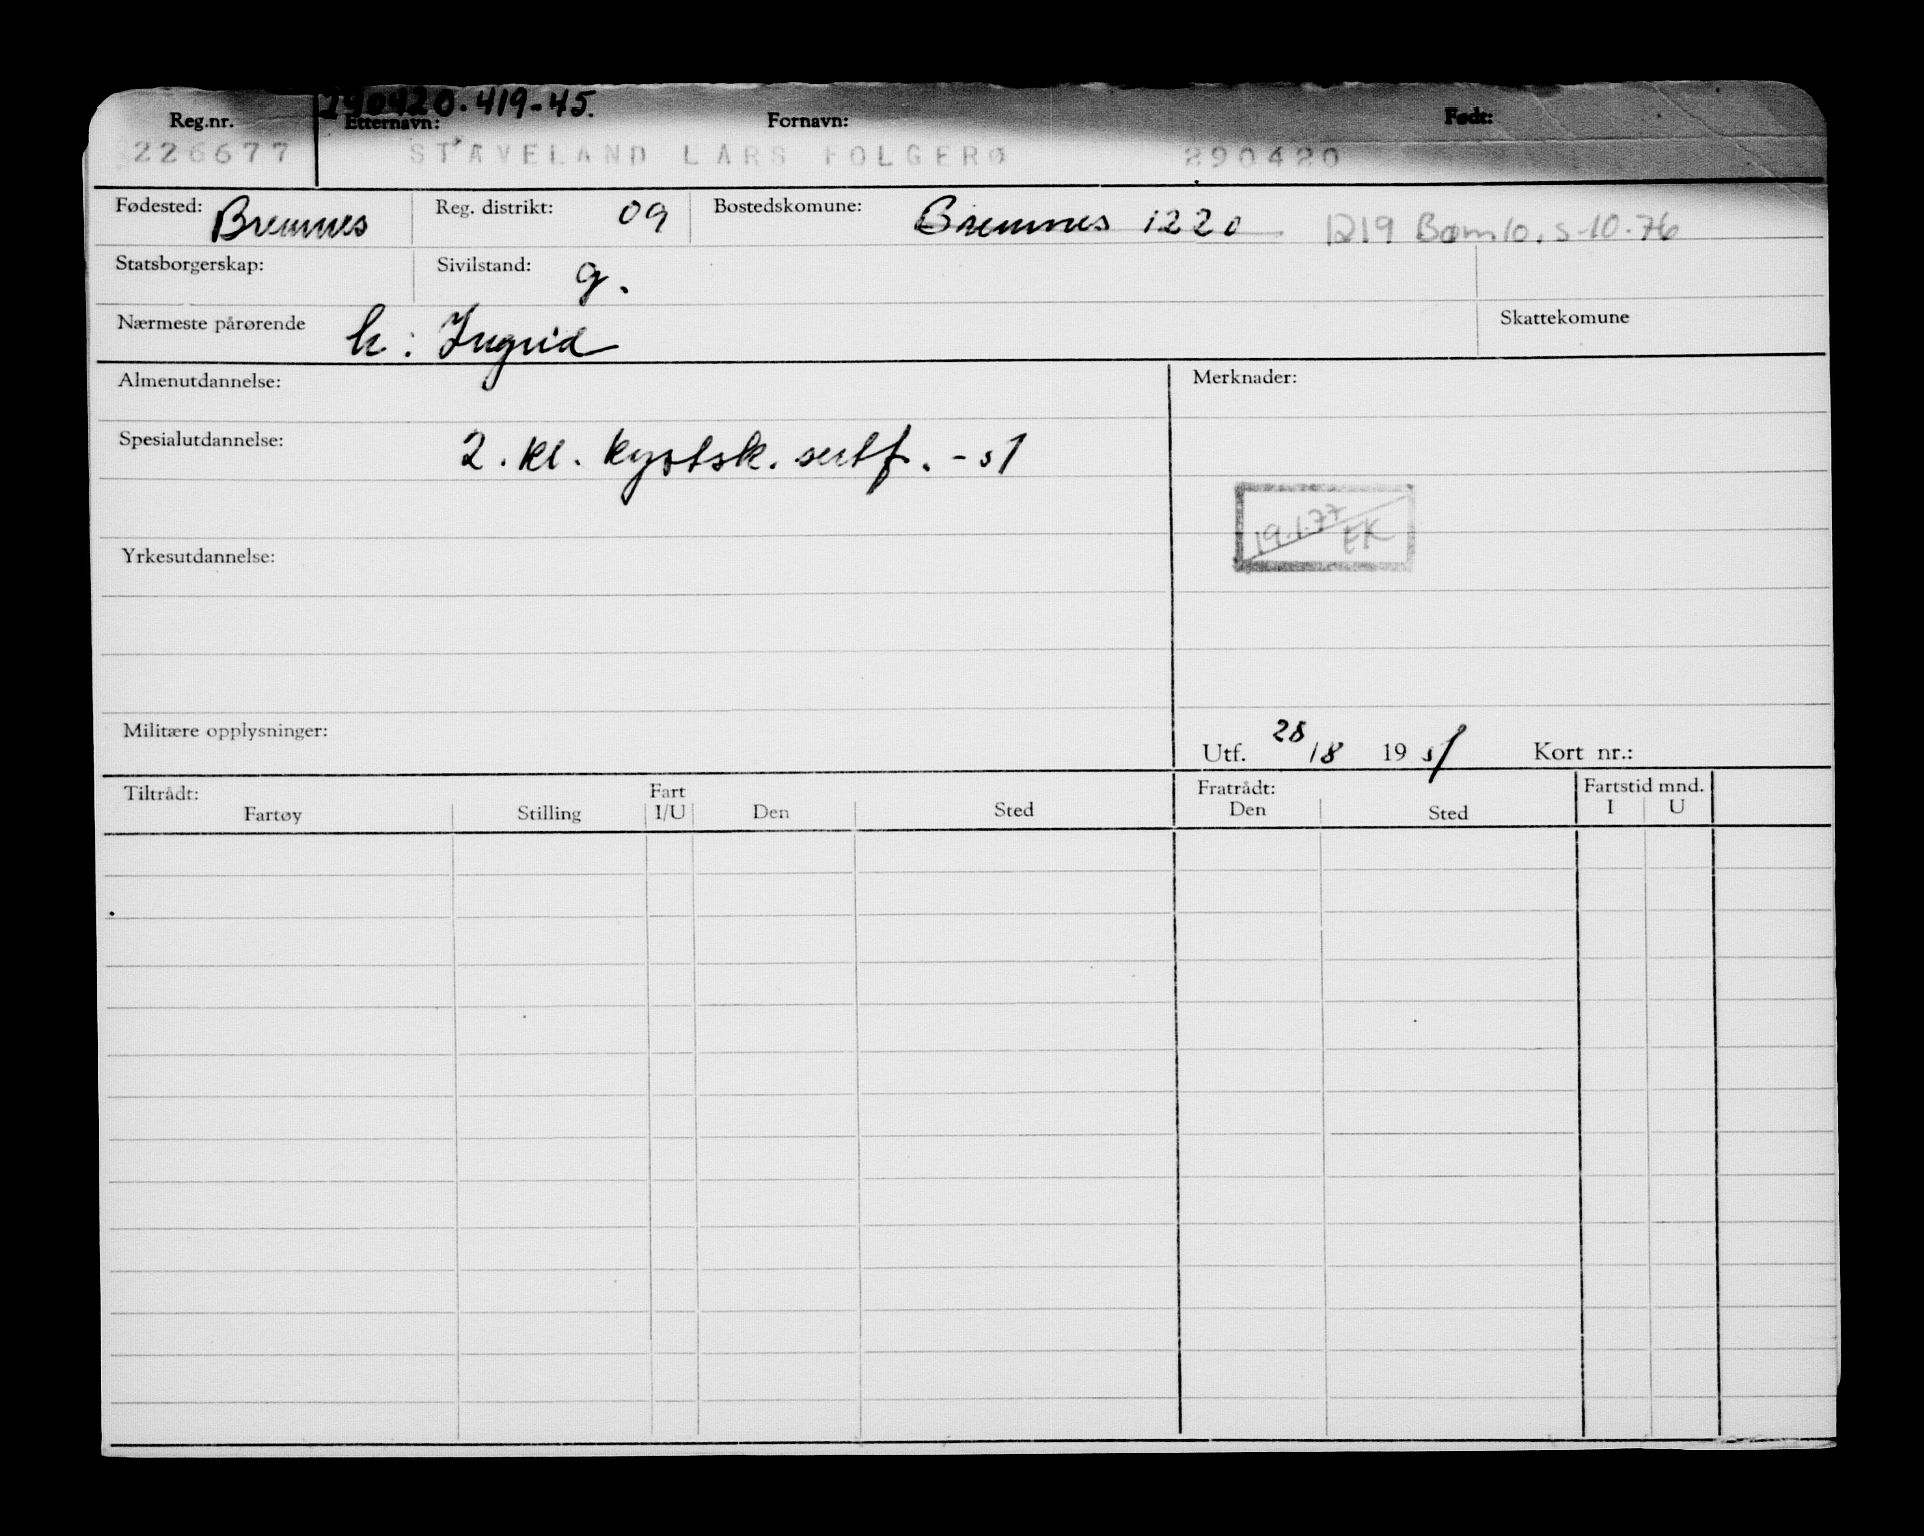 290420.419-45.
Reg.nr. Etternavn: Fornavn: Født:
226677 STAVELAND LARS FOLGERØ 290420
Fødested: Bremnes Reg. distrikt: 09 Bostedskomune: Bremnes 1220 1219 Bømlo. 5-10-76
Statsborgerskap: Sivilstand: g.
Nærmeste pårørende h: Ingrid Skattekomune
Almenutdannelse: Merknader:
Spesialutdannelse: 2. kl. kystsk. sertf. - 51
19.1.77
EK
Yrkesutdannelse:
Militære opplysninger:
Utf. 28/8 1951 Kort nr.:
Tiltrådt: Fart Fratrådt: Fartstid mnd.
Fartøy Stilling I/U Den Sted Den Sted I U